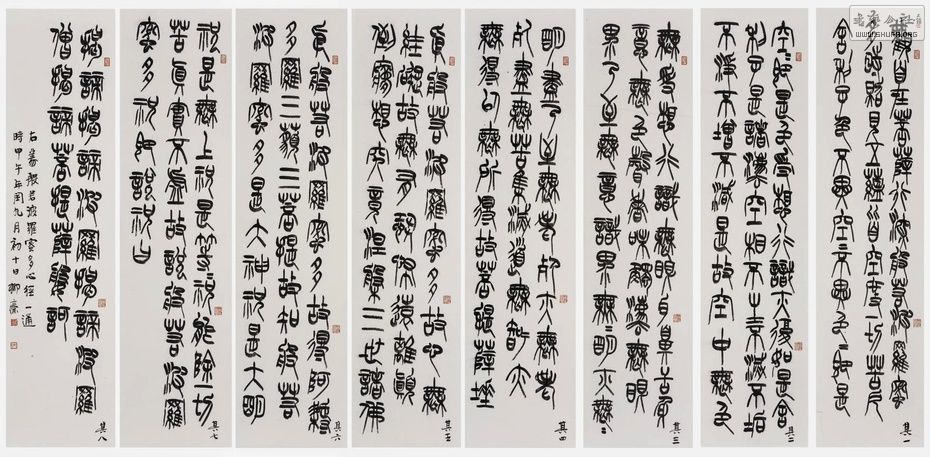 觀自在菩薩行深般若波羅蜜
多時照見五蘊皆空度一切苦厄
舍利子色不異空空不異色色即是
其一
空空即是色受想行識亦復如是舍
利子是諸法空相不生不滅不垢
不淨不增不減是故空中無色
其二
無受想行識無眼耳鼻舌身
意無色聲香味觸法無眼
界乃至無意識界無無明亦無無
其三
明盡乃至無老死亦無老
死盡無苦集滅道無智亦
無得以無所得故菩提薩埵
其四
依般若波羅蜜多故心無
罣礙故無有恐怖遠離顛
倒夢想究竟涅槃三世諸佛
其五
依般若波羅蜜多故得阿耨
多羅三藐三菩提故知般若
波羅蜜多是大神祝是大明
其六
祝是無上祝是等等祝能除一切
苦真實不虛故說般若波羅
蜜多祝即說祝曰
其七
揭諦揭諦波羅揭諦波羅
僧揭諦菩提薩婆訶
右篆般若波羅蜜多心經一通
時甲午年閏九月初十日
其八
WWW.SHUFA.ORG